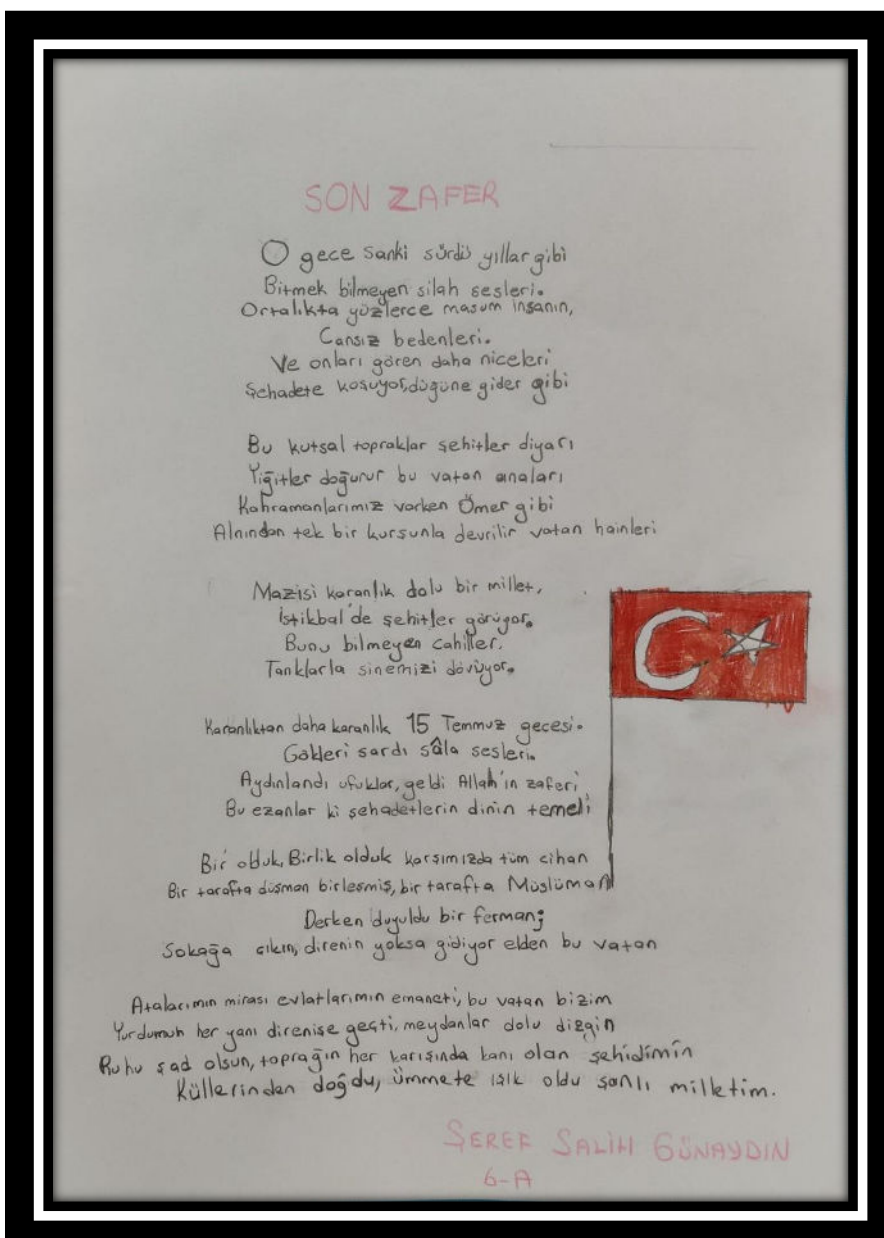 SON ZAFER
O gece sanki sürdü yıllar gibi
Bitmek bilmeyen silah sesleri.
Ortalıkta yüzlerce masum insanın,
Cansız bedenleri.
Ve onları gören daha niceleri
Şehadete koşuyor,düğüne gider gibi
Bu kutsal topraklar şehitler diyarı
Yiğitler doğurur bu vatan anaları
Kahramanlarımız varken Ömer gibi
Alnından tek bir kurşunla devrilir vatan hainleri
Mazisi karanlık dolu bir millet,
İstikbal'de şehitler görüyor.
Bunu bilmeyen cahiller,
Tanklarla sinemizi dövüyor.
Karanlıktan daha karanlık 15 Temmuz gecesi.
Gökleri sardı sâla sesleri.
Aydınlandı ufuklar, geldi Allah'ın zaferi
Bu ezanlar ki şehadetlerin dinin temeli
Bir olduk, Birlik olduk karşımızda tüm cihan
Bir tarafta düşman birleşmiş, bir tarafta Müslüman
Derken duyuldu bir ferman;
Sokağa çıkın, direnin yoksa gidiyor elden bu vatan
Atalarımın mirası evlatlarımın emaneti, bu vatan bizim
Yurdumun her yanı direnişe geçti, meydanlar dolu dizgin
Ruhu şad olsun, toprağın her karışında kanı olan şehidimin
Küllerinden doğdu, ümmete ışık oldu şanlı milletim.
ŞEREF SALİH GÜNAYDIN
6-A